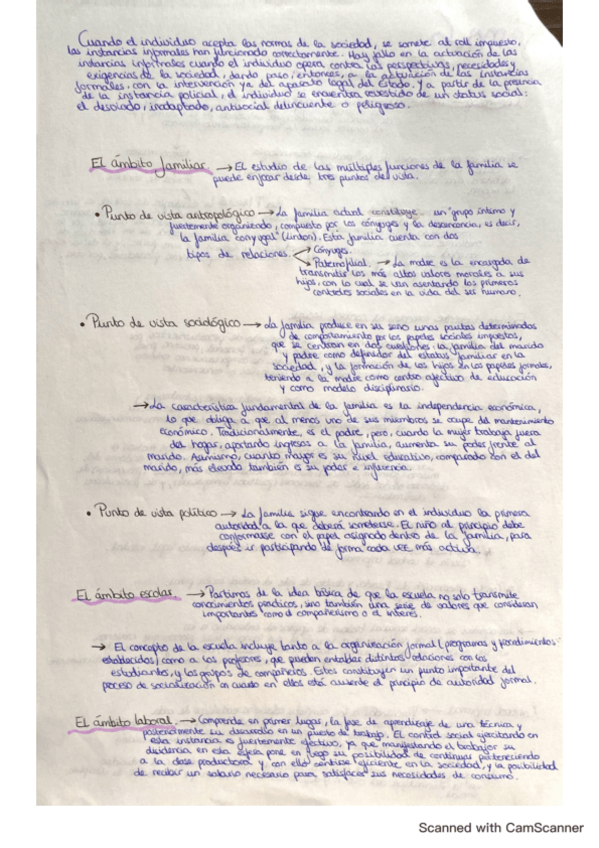 Cuando el individuo acepta las normas de la sociedad, se somete al rol impuesto,
las instancias informales han funcionado correctamente. Hay fallo en la actuación de las
instancias informales cuando el individuo opera contra las perspectivas, necesidades y
exigencias de la sociedad, dando paso, entonces, a la actuación de las instancias
formales, con la intervención ya del aparato legal del Estado. Y a partir de la presencia
de la instancia policial, el individuo se encuentra revestido de un status social:
el desviado, inadaptado, antisocial delincuente o peligroso.
El ámbito familiar → El estudio de las múltiples funciones de la familia se
puede enfocar desde tres puntos de vista.
• Punto de vista antropológico → La familia actual constituye un "grupo íntimo y
fuertemente organizado, compuesto por los cónyuges y la descendencia, es decir,
la familia conyugal" (Linton). Esta familia cuenta con dos
tipos de relaciones. Cónyuges
Paternofilial. → La madre es la encargada de
transmitir los más altos valores morales a sus
hijos, con lo cual se van asentando los primeros
controles sociales en la vida del ser humano.
• Punto de vista sociológico → La familia produce en su seno unas pautas determinadas
de comportamiento por los papeles sociales impuestos,
que se centran en dos cuestiones: la familia del marido
y padre como definidor del estatus familiar en la
sociedad, y la formación de los hijos en los papeles formales,
teniendo a la madre como centro afectivo de educación
y como modelo disciplinario.
→ La característica fundamental de la familia es la independencia económica,
lo que obliga a que al menos uno de sus miembros se ocupe del mantenimiento
económico. Tradicionalmente, es el padre, pero, cuando la mujer trabaja fuera
del hogar, aportando ingresos a la familia, aumenta su poder frente al
marido. Asimismo, cuanto mayor es su nivel educativo, comparado con el del
marido, más elevado también es su poder e influencia.
• Punto de vista político → La familia sigue encontrando en el individuo la primera
autoridad a la que deberá someterse. El niño al principio debe
conformarse con el papel asignado dentro de la familia, para
después ir participando de forma cada vez más activa.
El ámbito escolar → Partimos de la idea básica de que la escuela no solo transmite
conocimientos prácticos, sino también una serie de valores que consideran
importantes como el compañerismo o el interés.
→ El concepto de la escuela incluye tanto a la organización formal (programas y rendimientos
establecidos) como a los profesores, que pueden entablar distintas relaciones con los
estudiantes, y los grupos de compañeros. Estos constituyen un punto importante del
proceso de socialización en cuanto en ellos está ausente el principio de autoridad formal.
El ámbito laboral → Comprende en primer lugar, la fase de aprendizaje de una técnica y
posteriormente su desarrollo en un puesto de trabajo. El control social ejercitando en
esta instancia es fuertemente efectivo, ya que manifestando el trabajador su
disidencia en esta esfera pone en juego su posibilidad de continuar perteneciendo
a la clase productora y con ello sentirse eficiente en la sociedad, y la posibilidad
de recibir un salario necesario para satisfacer sus necesidades de consumo.
Scanned with CamScanner